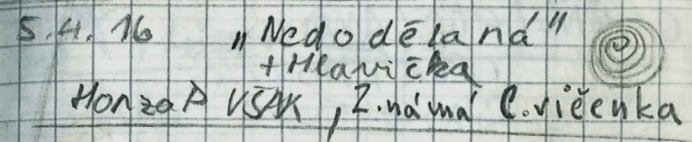 5.4.16 „Nedodělaná"
+Hlavička
Honza P VŠAK, Z.námá C.vičenka